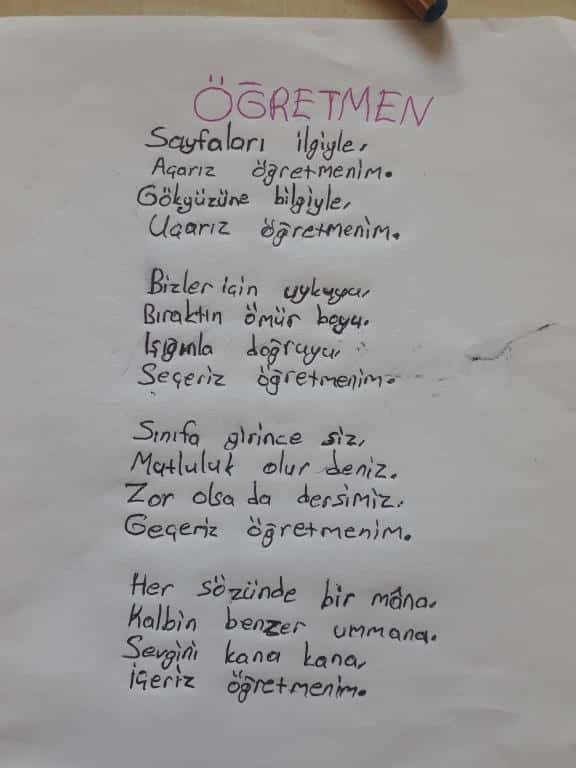 ÖĞRETMEN
Sayfaları ilgiyle,
Açarız öğretmenim.
Gökyüzüne bilgiyle,
Uçarız öğretmenim.
Bizler için uykuyu,
Bıraktın ömür boyu.
Işığınla doğruyu,
Seçeriz öğretmenim.
Sınıfa girince siz,
Matluluk olur deniz.
Zor olsa da dersimiz.
Geçeriz öğretmenim.
Her sözünde bir mâna,
Kalbin benzer ummana.
Sevgini kana kana,
içeriz öğretmenim.